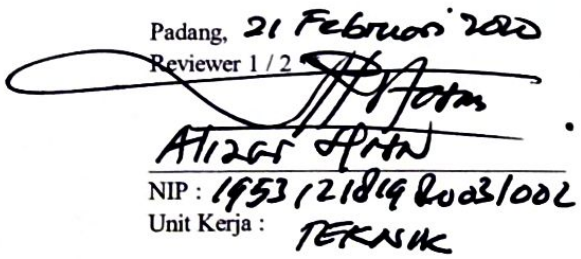 Padang, 21 Februari 2020
Reviewer 1 / 2
Alizar
NIP : 195312181980031002
Unit Kerja : TEKNIK